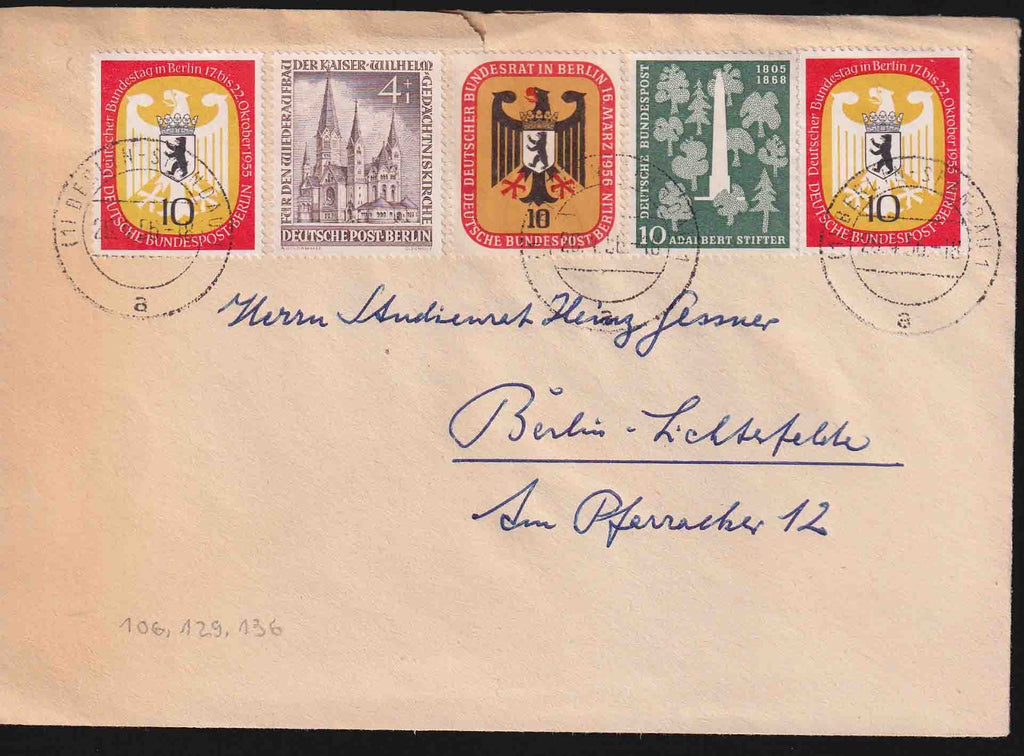 Deutscher Bundestag in Berlin 17. bis 22. Oktober 1955
10
DEUTSCHE BUNDESPOST-BERLIN
FÜR DEN WIEDERAUFBAU DER KAISER-WILHELM-GEDÄCHTNISKIRCHE
4+1
DEUTSCHE POST·BERLIN
DEUTSCHER BUNDESRAT IN BERLIN 16. MÄRZ 1956
10
DEUTSCHE BUNDESPOST BERLIN
DEUTSCHE BUNDESPOST
1805
1868
10 ADALBERT STIFTER
Deutscher Bundestag in Berlin 17. bis 22. Oktober 1955
10
DEUTSCHE BUNDESPOST-BERLIN
a
a
a
Herrn Studienrat Heinz Gessner
Berlin-Lichterfelde
Am Pfarracker 12
106, 129, 136